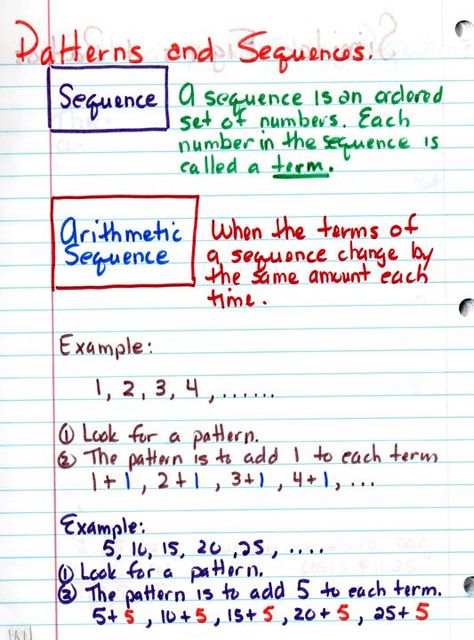 Patterns and Sequences.
Sequence
A sequence is an ordered
set of numbers. Each
number in the sequence is
called a term.
Arithmetic
Sequence
When the terms of
a sequence change by
the same amount each
time.
Example:
1, 2, 3, 4, ......
① Look for a pattern.
② The pattern is to add 1 to each term
1+1, 2+1, 3+1, 4+1, ...
Example:
5, 10, 15, 20, 25, ....
① Look for a pattern.
② The pattern is to add 5 to each term.
5+5, 10+5, 15+5, 20+5, 25+5